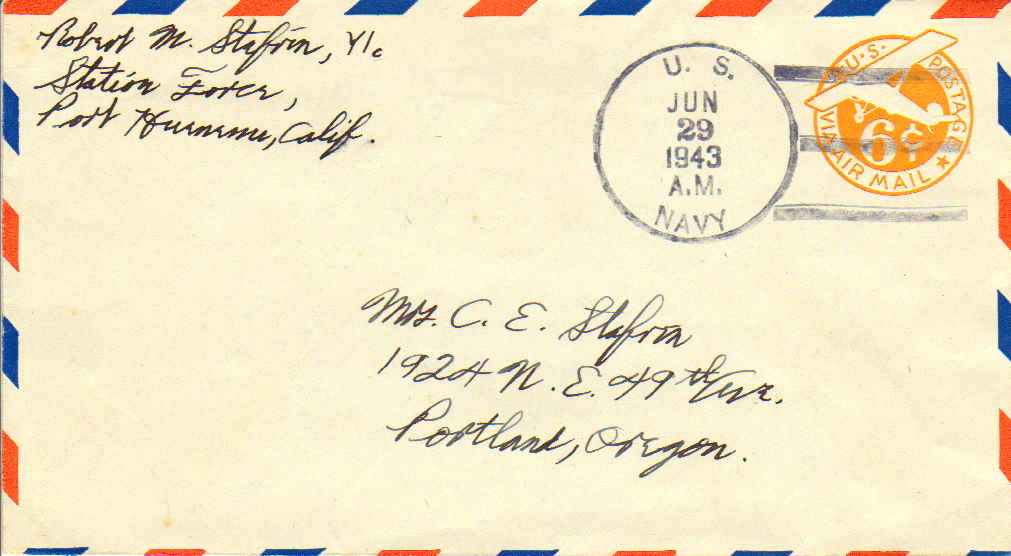 Robert M. Stafrin, Y1c
Station Force,
Port Hueneme, Calif.
U. S.
JUN
29
1943
A.M.
NAVY
U·S· POSTAGE
6¢
VIA AIR MAIL ★
Mrs. C. E. Stafrin
1924 N. E. 49th Ave.
Portland, Oregon.